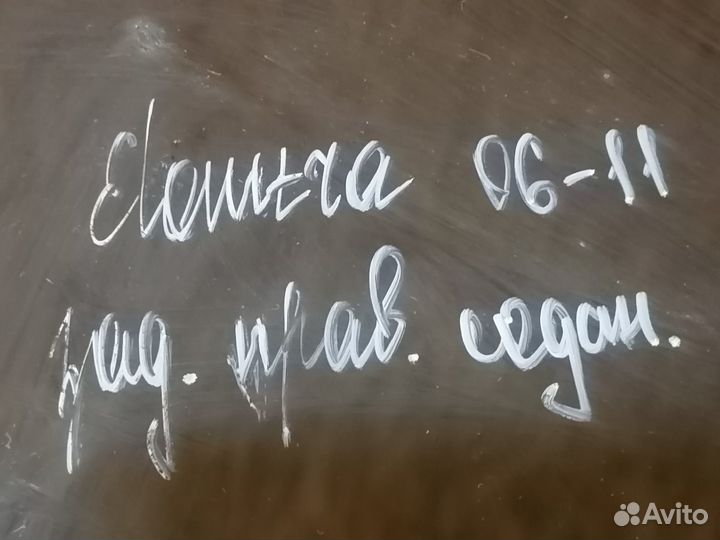 Elantra 06-11
зад. прав. седан.
Avito